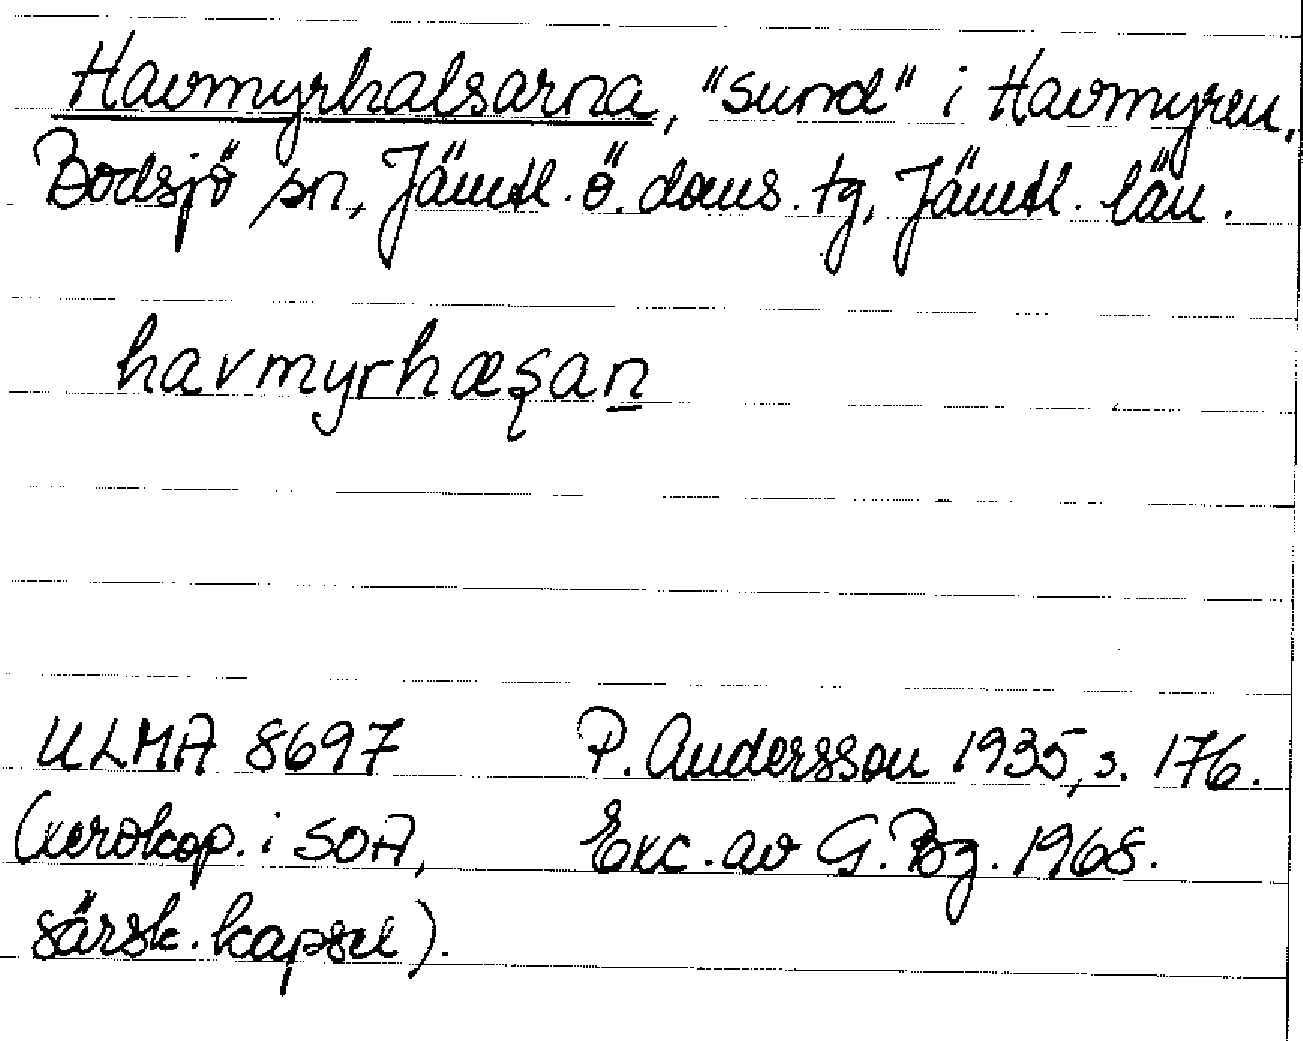 Havmyrhalsarna, "sund" i Havmyren.
Bodsjö sn, Jämtl. ö. doms. tg, Jämtl. län.
havmyrhæşan̲
ULMA 8697 P. Andersson 1935, s. 176.
(xerokop. i SOA, Exc. av G. Bg. 1968.
särsk. kapsel).